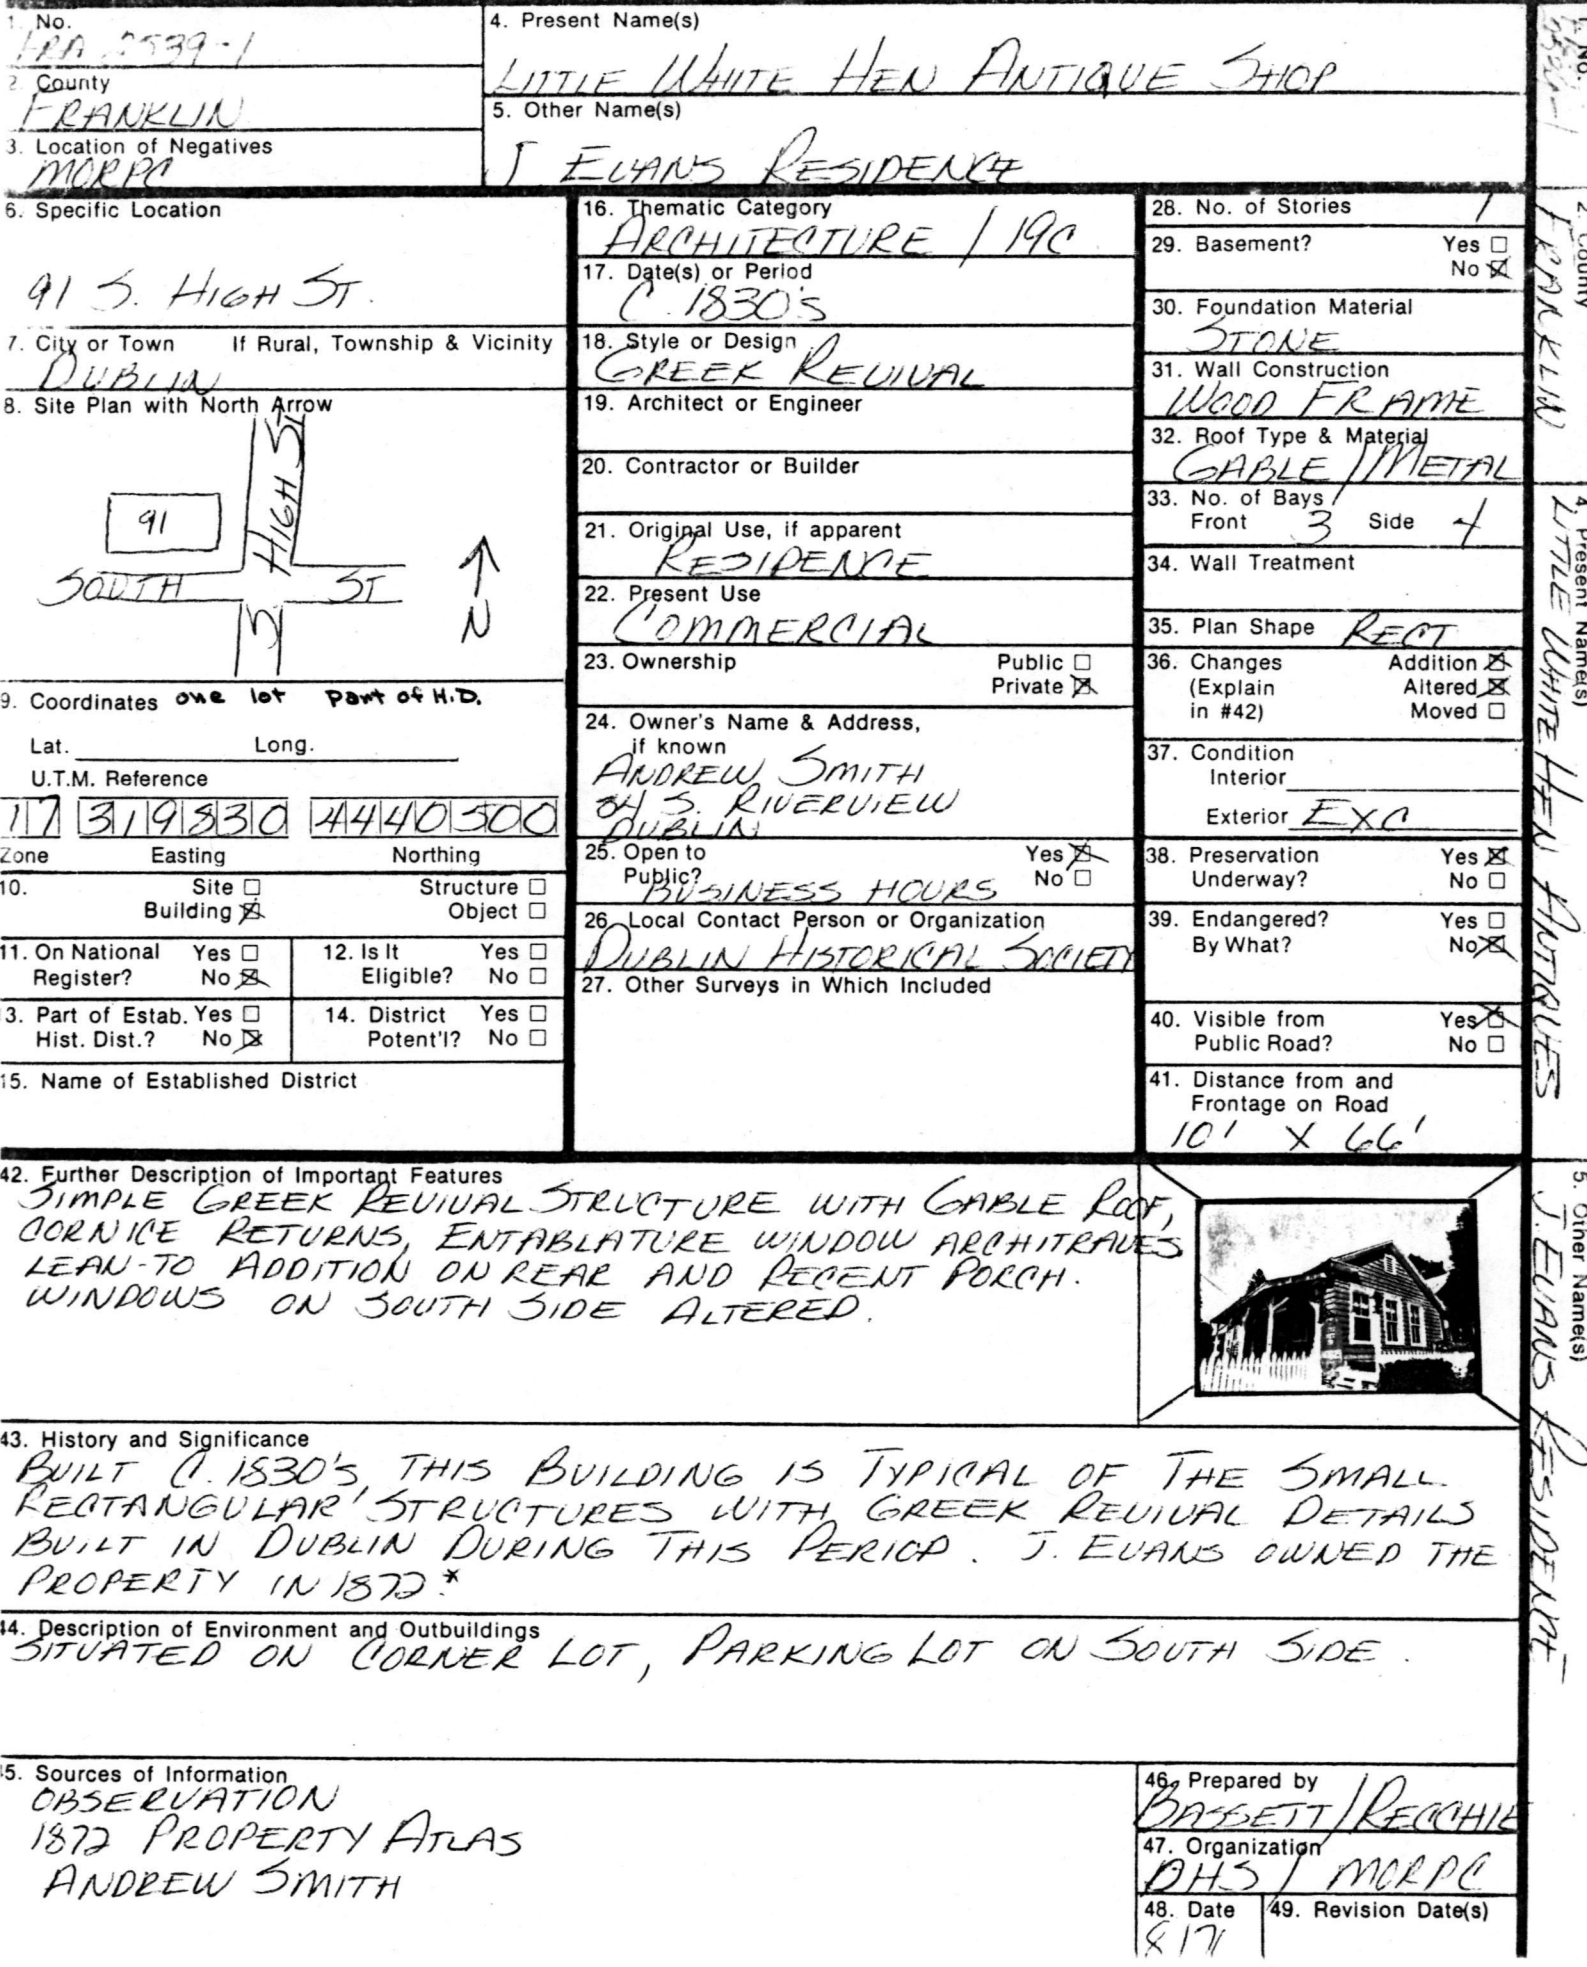 1. No.
FRA 2539-1
2. County
FRANKLIN
3. Location of Negatives
MORPC
4. Present Name(s)
LITTLE WHITE HEN ANTIQUE SHOP
5. Other Name(s)
J EVANS RESIDENCE
6. Specific Location
91 S. HIGH ST.
7. City or Town If Rural, Township & Vicinity
DUBLIN
8. Site Plan with North Arrow
91
S. HIGH ST
SOUTH ST
N
9. Coordinates one lot part of H.D.
Lat. Long.
U.T.M. Reference
17 319830 4440500
Zone Easting Northing
10. Site ☐ Structure ☐
Building ☒ Object ☐
11. On National Yes ☐
Register? No ☒
12. Is It Yes ☐
Eligible? No ☐
3. Part of Estab. Yes ☐
Hist. Dist.? No ☒
14. District Yes ☐
Potent'l? No ☐
15. Name of Established District
16. Thematic Category
ARCHITECTURE / 19C
17. Date(s) or Period
C. 1830'S
18. Style or Design
GREEK REVIVAL
19. Architect or Engineer
20. Contractor or Builder
21. Original Use, if apparent
RESIDENCE
22. Present Use
COMMERCIAL
23. Ownership Public ☐
Private ☒
24. Owner's Name & Address,
if known
ANDREW SMITH
84 S. RIVERVIEW
DUBLIN
25. Open to Yes ☒
Public? No ☐
BUSINESS HOURS
26. Local Contact Person or Organization
DUBLIN HISTORICAL SOCIETY
27. Other Surveys in Which Included
28. No. of Stories 1
29. Basement? Yes ☐
No ☒
30. Foundation Material
STONE
31. Wall Construction
WOOD FRAME
32. Roof Type & Material
GABLE / METAL
33. No. of Bays
Front 3 Side 4
34. Wall Treatment
35. Plan Shape RECT
36. Changes Addition ☒
(Explain Altered ☒
in #42) Moved ☐
37. Condition
Interior
Exterior EXC
38. Preservation Yes ☒
Underway? No ☐
39. Endangered? Yes ☐
By What? No ☒
40. Visible from Yes ☒
Public Road? No ☐
41. Distance from and
Frontage on Road
10' X 66'
42. Further Description of Important Features
SIMPLE GREEK REVIVAL STRUCTURE WITH GABLE ROOF,
CORNICE RETURNS, ENTABLATURE WINDOW ARCHITRAVES
LEAN-TO ADDITION ON REAR AND RECENT PORCH.
WINDOWS ON SOUTH SIDE ALTERED.
43. History and Significance
BUILT C. 1830'S, THIS BUILDING IS TYPICAL OF THE SMALL
RECTANGULAR STRUCTURES WITH GREEK REVIVAL DETAILS
BUILT IN DUBLIN DURING THIS PERIOD. J. EVANS OWNED THE
PROPERTY IN 1872.*
44. Description of Environment and Outbuildings
SITUATED ON CORNER LOT, PARKING LOT ON SOUTH SIDE.
45. Sources of Information
OBSERVATION
1872 PROPERTY ATLAS
ANDREW SMITH
46. Prepared by
BASSETT / RECCHIE
47. Organization
DHS / MORPC
48. Date
49. Revision Date(s)
1. No.
2. County
FRANKLIN
4. Present Name(s)
LITTLE WHITE HEN ANTIQUES
5. Other Name(s)
J. EVANS RESIDENCE